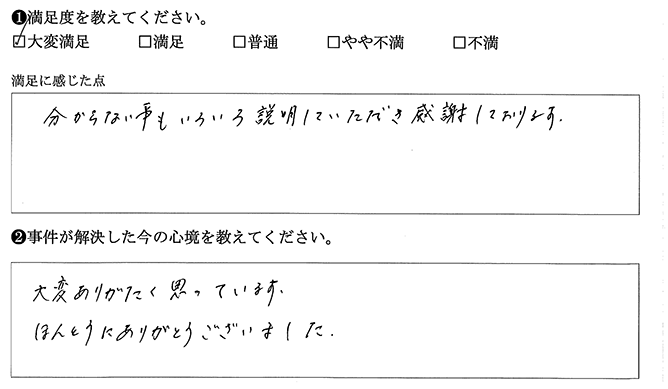 ❶満足度を教えてください。
☑大変満足 □満足 □普通 □やや不満 □不満
満足に感じた点
分からない事もいろいろ説明していただき感謝しております.
❷事件が解決した今の心境を教えてください。
大変ありがたく思っています.
ほんとうにありがとうございました.